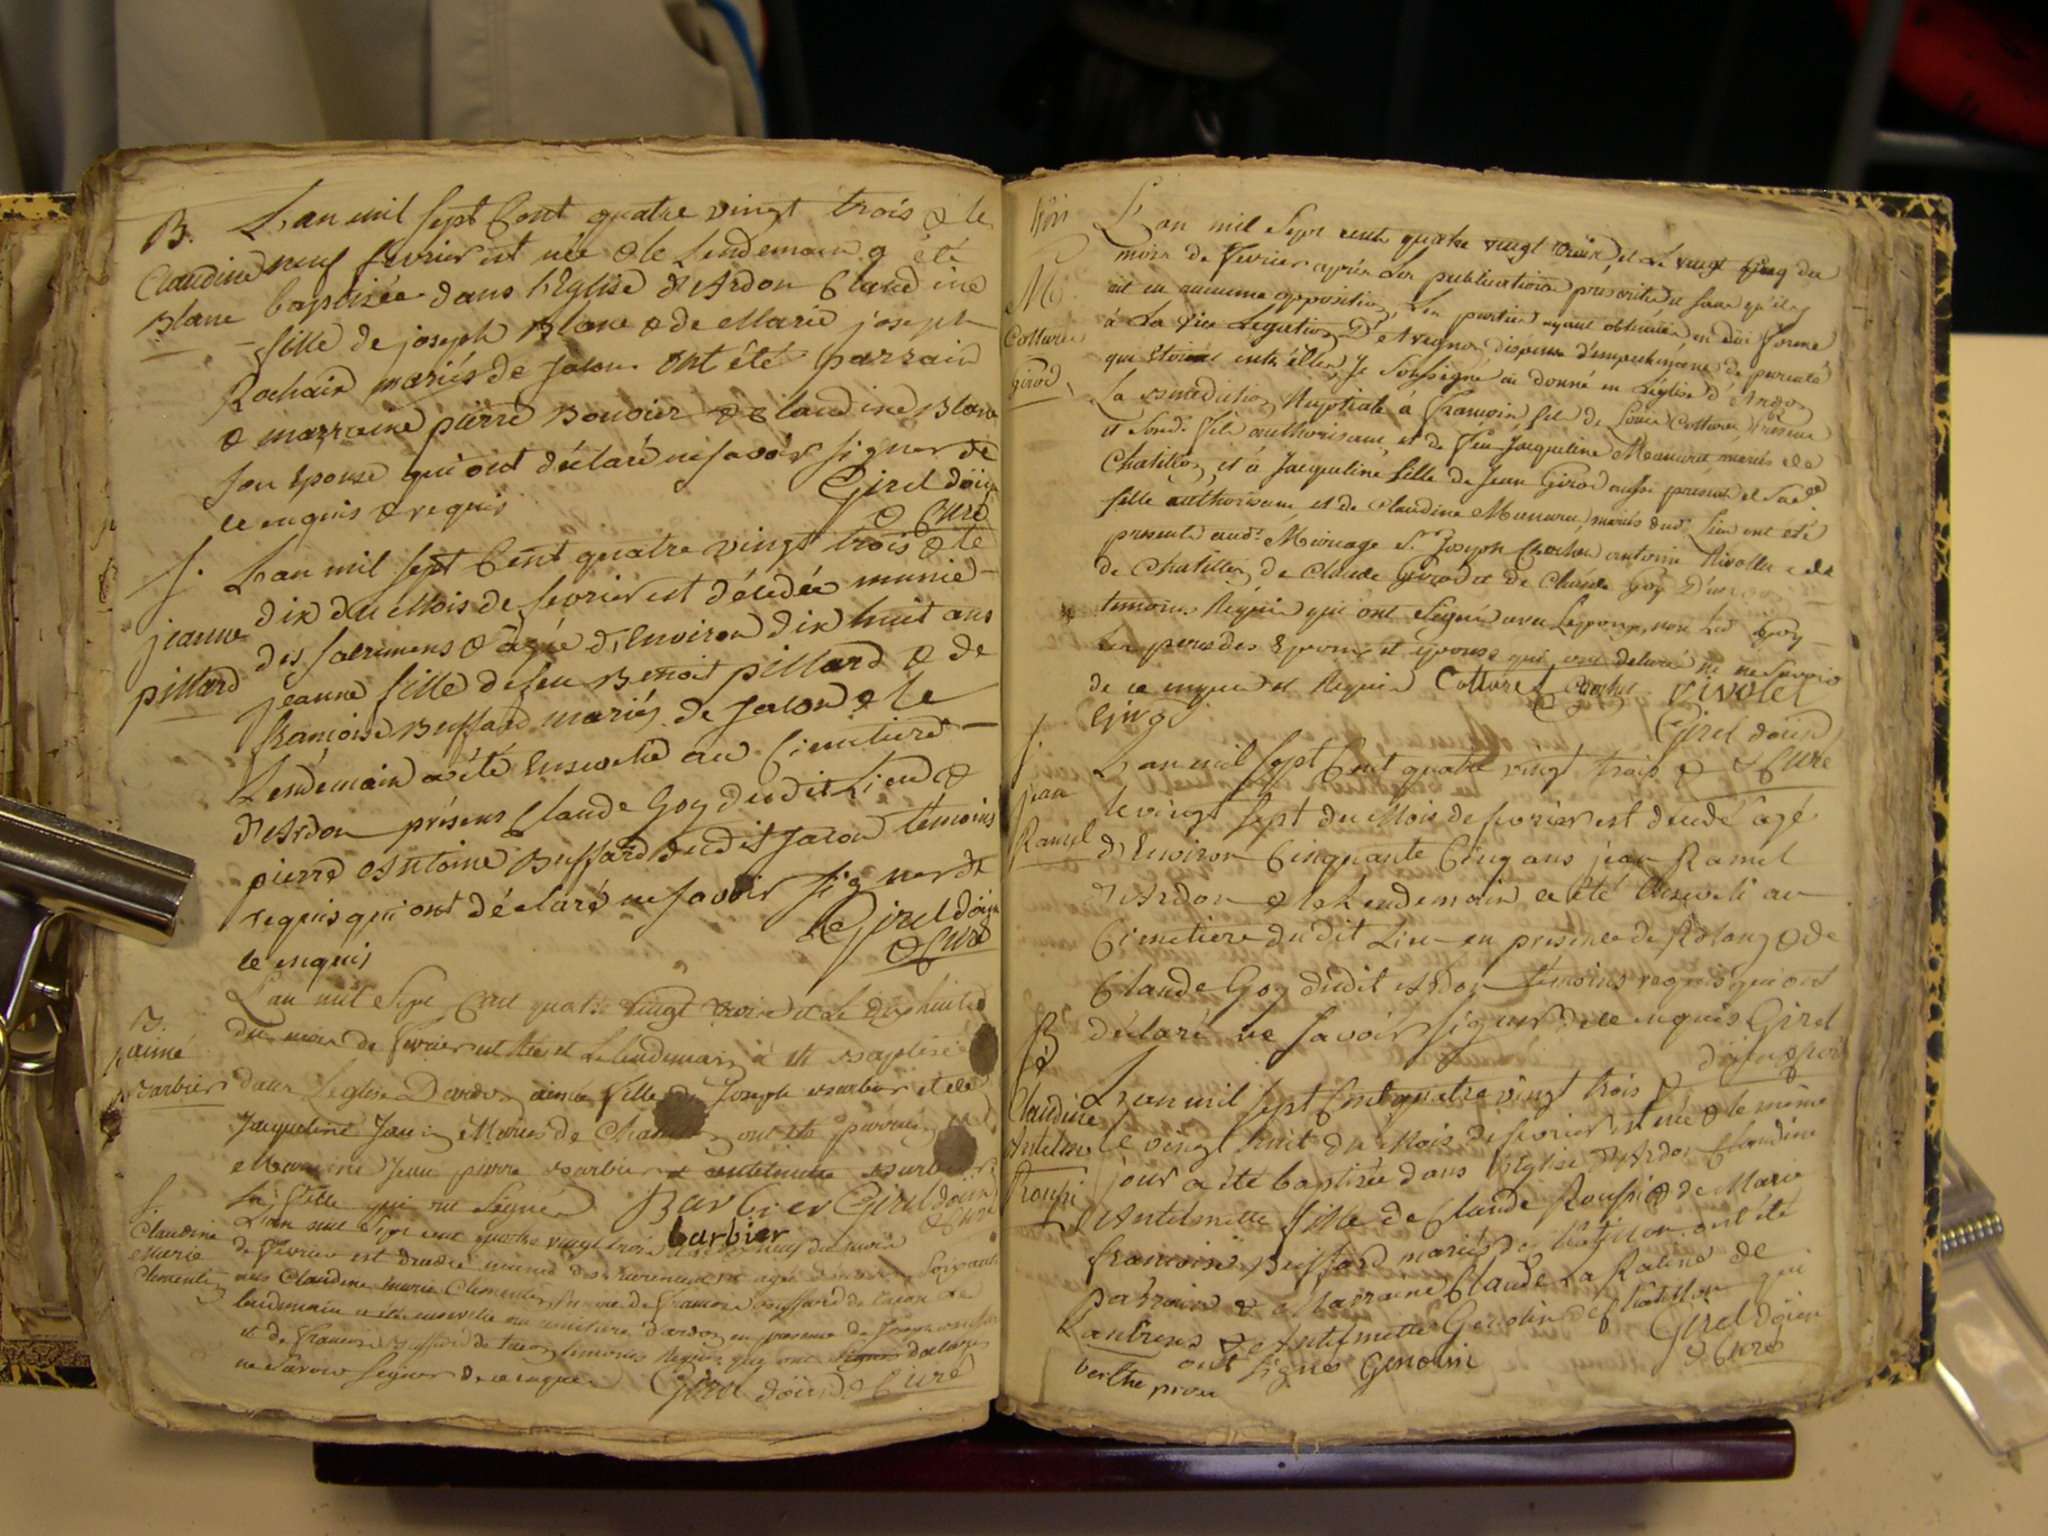 B.
Claudine
Blanc
L'an mil sept Cent quatre vingt trois & le
neuf fevrier est née & le Lendemain a été
baptisée dans l'Eglise d'Ardon Claudine
fille de joseph Blanc & de Marie joseph
Rochaix mariés de jalou ont été parrain
& marraine pierre Bouvier & Claudine Blanc
son épouse qui ont déclaré ne savoir signer de
ce enquis & requis
Girel doïen
& Curé
S.
jeanne
pillard
L'an mil sept Cent quatre vingt trois & le
dix du Mois de fevrier est décédée munie
des sacremens & agée d'Environ dix huit ans
jeanne fille de feu Benoit pillard & de
francoise Buffard mariés de jalou & le
Lendemain a été Ensevelie au Cimetiere
d'Ardon présens Claude Goy dudit Lieu &
pierre Antoine Buffard dudit jalou témoins
requis qui ont déclaré ne savoir signer de
ce enquis
Girel doïen
& Curé
B.
aimé
Barbier
L'an mil Sept Cent quatre vingt trois et Le dix huit
du mois de fevrier est née et Le lendemain à été Baptisé
dans L'eglise D'ardon aimé fille de Joseph Barbier et de
Jacqueline mariés de ont été parrain et
Marraine Jean pierre Barbier et antelmette Barbier
sa fille qui ont Signé
Barbier Girel doïen
& Curé
barbier
S.
Claudine
Marie
L'an mil Sept cent quatre vingt trois et le dix neuf du mois
de fevrier est decedée munie des sacremens et agée d'environ Soixante
ans Claudine Marie femme de francois Buffard de
lendemain a été ensevelie au cimetiere d'ardon en presence de Joseph
et de francois Buffard de temoins Requis qui ont declarés
ne Savoir Signer de ce enquis
Girel doïen & Curé
M.
Cotturet
Girod
L'an mil Sept cent quatre vingt trois et Le vingt cinq du
mois de fevrier après Les publications préscrites sans qu'il y
ait eu aucunne opposition, Les parties ayant obtenües en düe forme
à La Vice Legation D'Avignon dispense d'empechement de parenté
qui étoient entr'elles, Je Soussigné ai donné en L'église d'Ardon
La Benediction Nuptiale à François fils de Louis Cotturet présent
et Sond. fils authorisant, et de feu Jacqueline mariés de
Chatillon et à Jacqueline fille de Jean Girod aussi présent et Sad.
fille authorisant et de Claudine mariés dud. Lieu ont été
presents aud. Mariage Sr. Joseph antoine Rivollet de
de Chatillon, de Claude Girod et de Claude Goy D'ardon
temoins Requis qui ont Signé avec L'epoux, non Led. Goy
Les peres des Epoux et épouse qui ont declaré ne Savoir
de ce enquis et Requis Cotturet Rivolet
Girod
Girel doïen
& Curé
S.
jean
Ramel
L'an mil sept Cent quatre vingt trois &
le vingt sept du Mois de fevrier est decedé agé
d'Environ Cinquante Cinq ans jean Ramel
d'Ardon & le Lendemain a été Enseveli au
Cimetiere du dit Lieu en presence de & de
Claude Goy dudit Ardon témoins requis qui ont
déclaré ne savoir signer de ce enquis Girel
B
Claudine
Antelme
L'an mil sept Cent quatre vingt trois &
le vingt huit du Mois de fevrier est née & le même
jour a été baptisée dans l'Eglise d'Ardon Claudine
Antelmette fille de Claude & de Marie
francoise Buffard mariés de Chatillon ont été
parrain & Marraine Claude La Ratine de
& Antelmette de Chatillon qui
ont signé
Girel doïen
& Curé